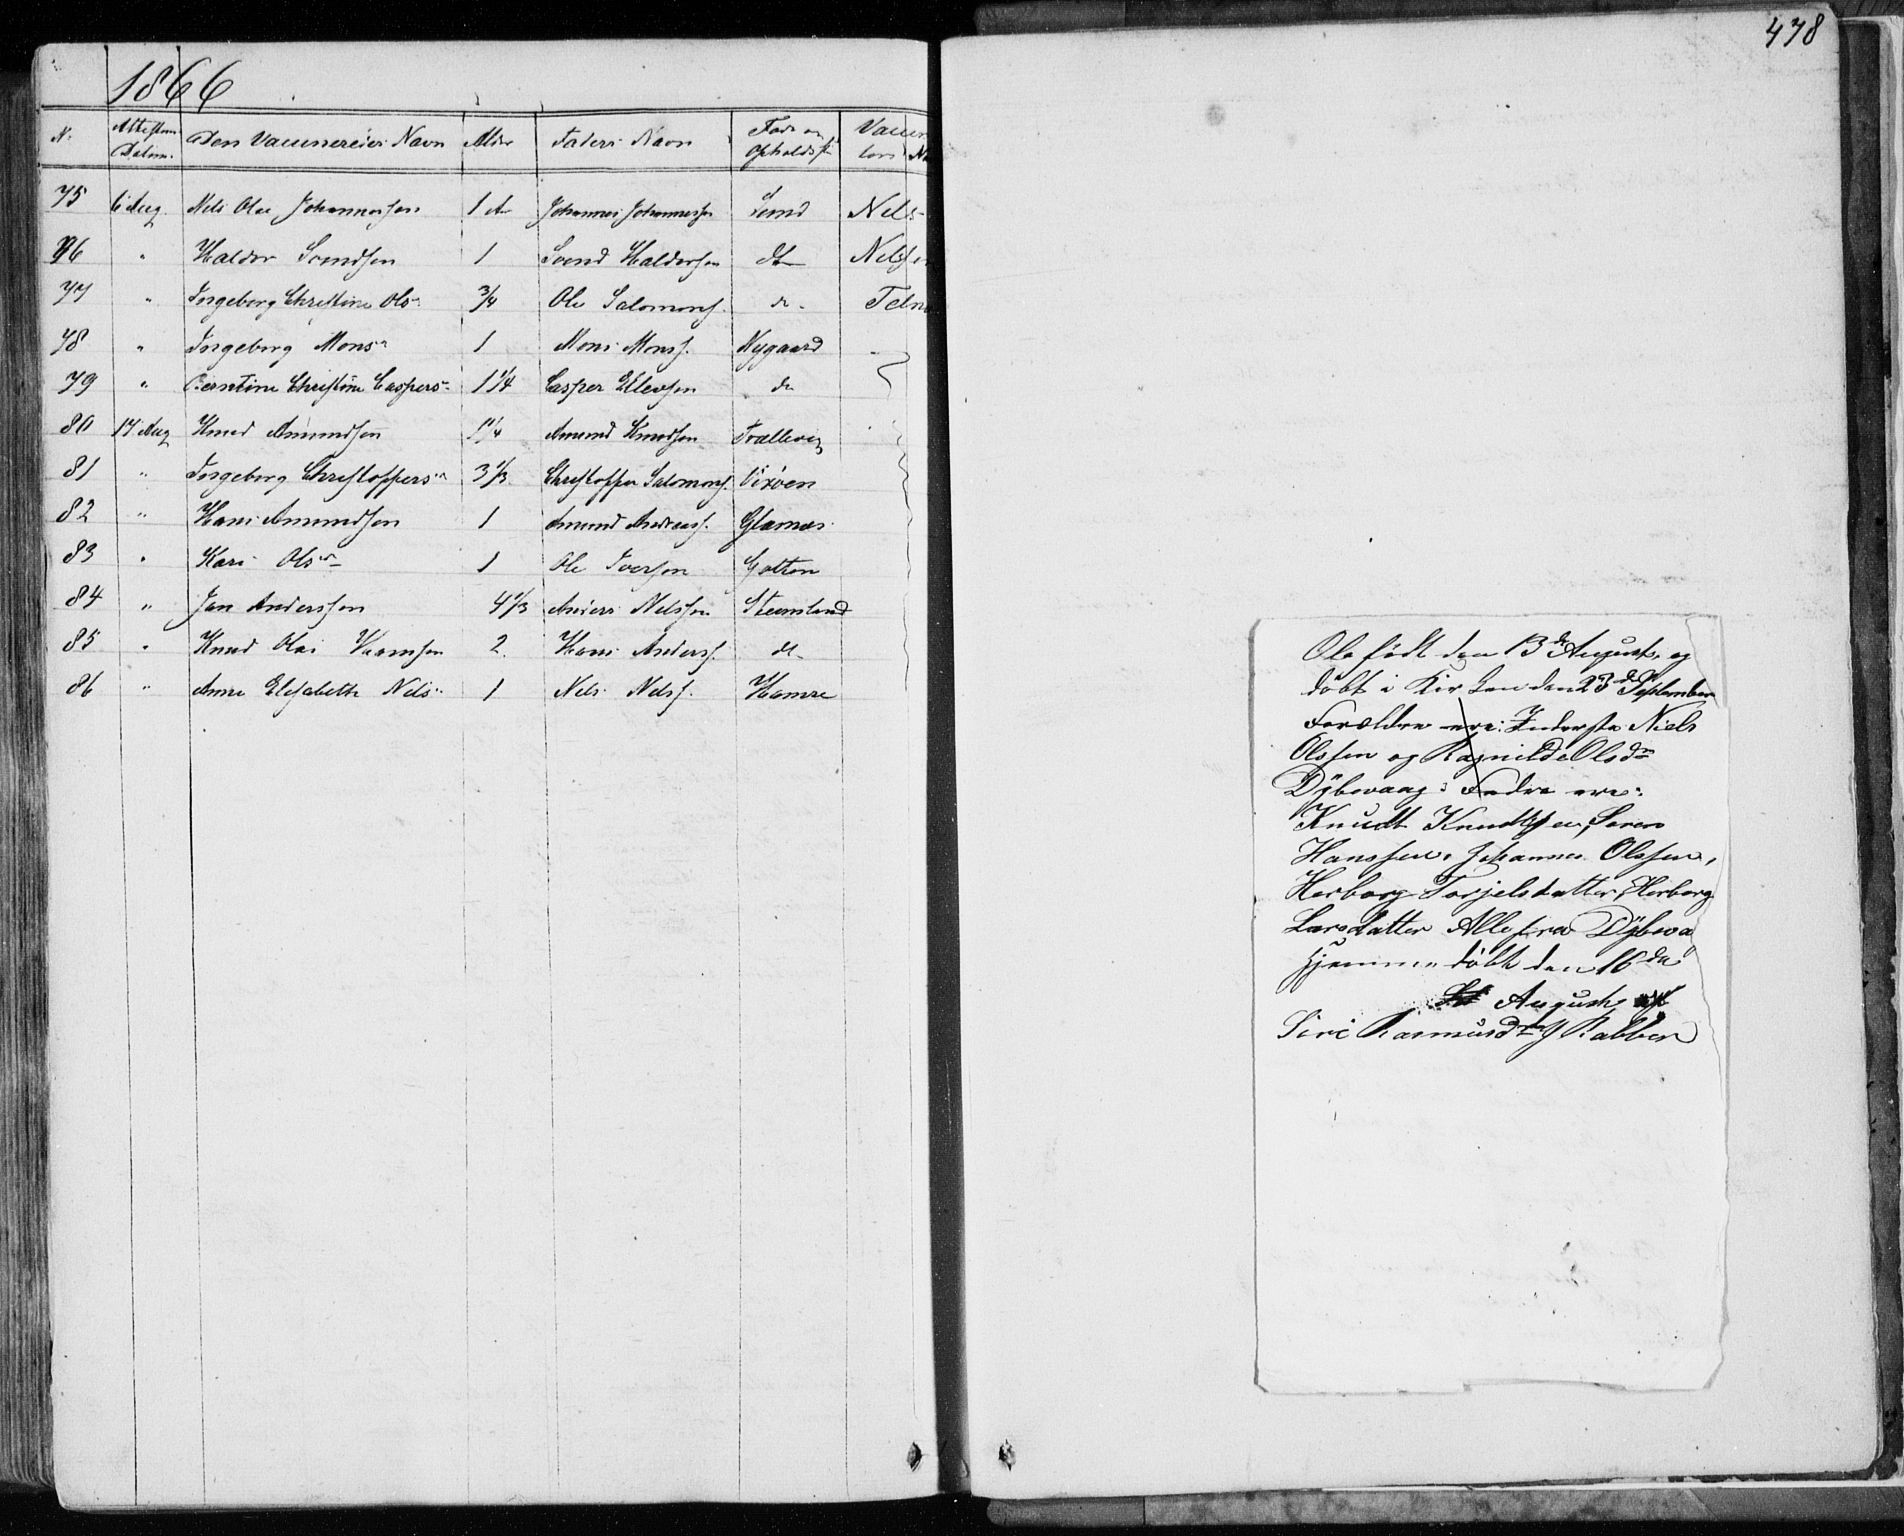 1866
N. Attestens Datum. Den Vaccineredes Navn Alder Faders Navn Føde og Opholdsst Vaccina tors N
75 6 Aug Nels Olai Johannessen 1 Ar Johannes Johannessen Semd Nels
76 " Haldor Svendsen 1 Svend Haldorsen do Nelssen
77 " Ingeborg Christine Olsr 3/4 Ole Salomons. do Telne
78 " Ingeborg Monsr 1 Mons Monss. Nygaard "
79 " Berntine Christine Caspersr 1 1/4 Casper Ellevsen do
80 17 Aug Knud Amundsen 1 1/4 Amund Knudsen Trællevig
81 " Ingeborg Christoppersr 3 1/3 Christopper Salomons. Vixøen
82 " Hans Amundsen 1 Amund Andreass. Glæsnæs
83 " Kari Olsr 1 Ole Iversen Golten
84 " Jan Anderssen 4 1/3 Anders Nelssen Steensland
85 " Knud Olai Hansen 2. Hans Anders. do
86 " Anne Elisabeth Nelsr 1 Nels Nelss. Hamre
478
Ole født den 13de August og
döbt i Kirken den 23de September
Forældre ere: Inderste Niels
Olssen og Ragnilde Olsdr
Dÿbevaag: Fadre ere:
Knudt Knudtssen, Søren
Hanssen, Johannes Olssen,
Herborg Torjelsdatter, Herborg
Larsdatter Alle fra Dÿbeva
Hjemme döbt den 16de
August af
Siri Rasmusdr Rabben